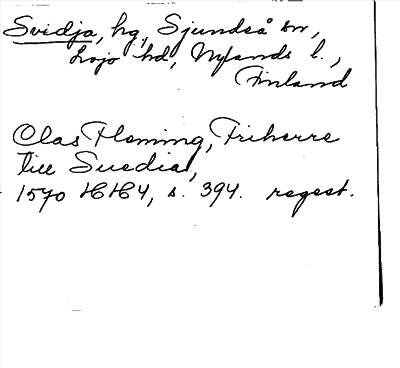 Svidja, hg, Sjundeå sn,
Lojo hd, Nylands l.,
Finland
Clas Fleming, Friherre
till Suedia,
1570 HH4, s. 394. regest.